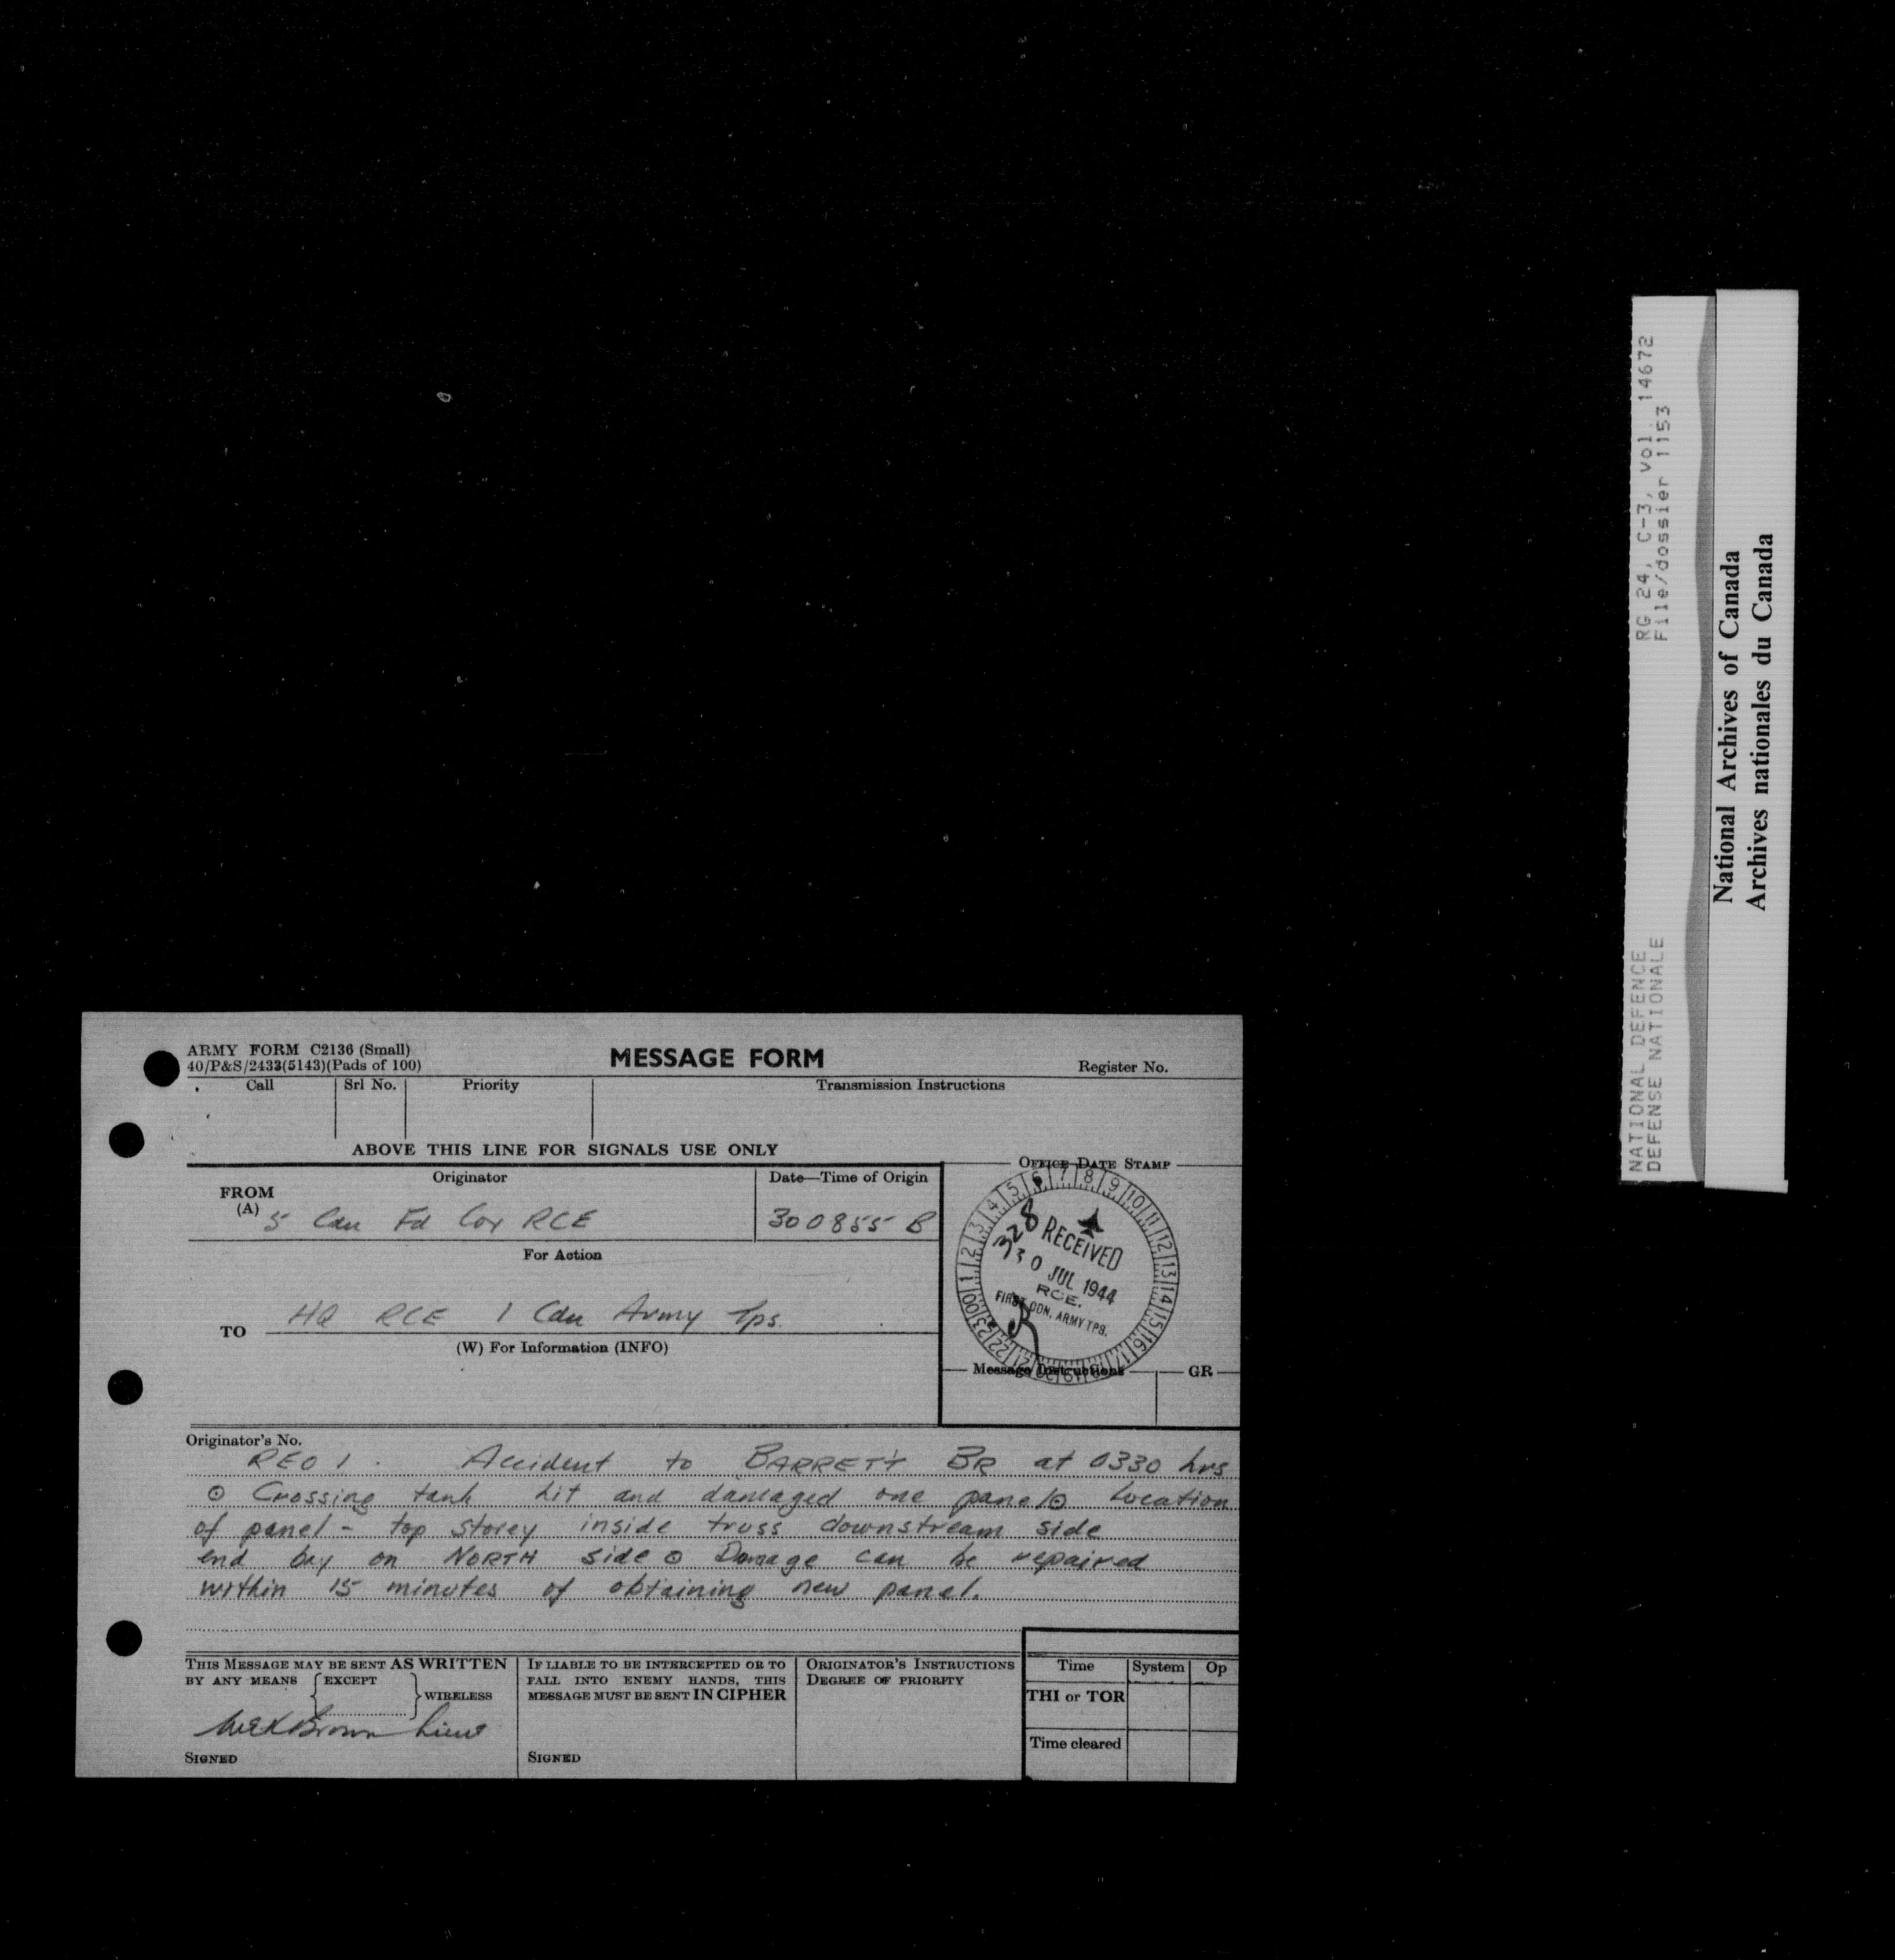 ARMY FORM C2136 (Small)
40/P&S/2433(5143)(Pads of 100)
MESSAGE FORM
Register No.
Call Srl No. Priority Transmission Instructions
ABOVE THIS LINE FOR SIGNALS USE ONLY
FROM
(A)
Originator
5 Cdn Fd Coy RCE
Date—Time of Origin
300855 B
OFFICE DATE STAMP
328
RECEIVED
30 JUL 1944
RCE.
FIRST CDN. ARMY TPS.
For Action
TO
HQ RCE 1 Cdn Army Tps.
(W) For Information (INFO)
Message Instructions
GR
Originator's No.
REO 1. Accident to BARRETT BR at 0330 hrs
⊙ Crossing tank hit and damaged one panel ⊙ Location
of panel - top storey inside truss downstream side
end bay on NORTH side ⊙ Damage can be repaired
within 15 minutes of obtaining new panel.
THIS MESSAGE MAY BE SENT AS WRITTEN
BY ANY MEANS EXCEPT WIRELESS
Brown Lieut
SIGNED
IF LIABLE TO BE INTERCEPTED OR TO
FALL INTO ENEMY HANDS, THIS
MESSAGE MUST BE SENT IN CIPHER
SIGNED
ORIGINATOR'S INSTRUCTIONS
DEGREE OF PRIORITY
Time System Op
THI or TOR
Time cleared
NATIONAL DEFENCE RG 24, C-3, vol. 14672
DEFENSE NATIONALE File/dossier 1153
National Archives of Canada
Archives nationales du Canada